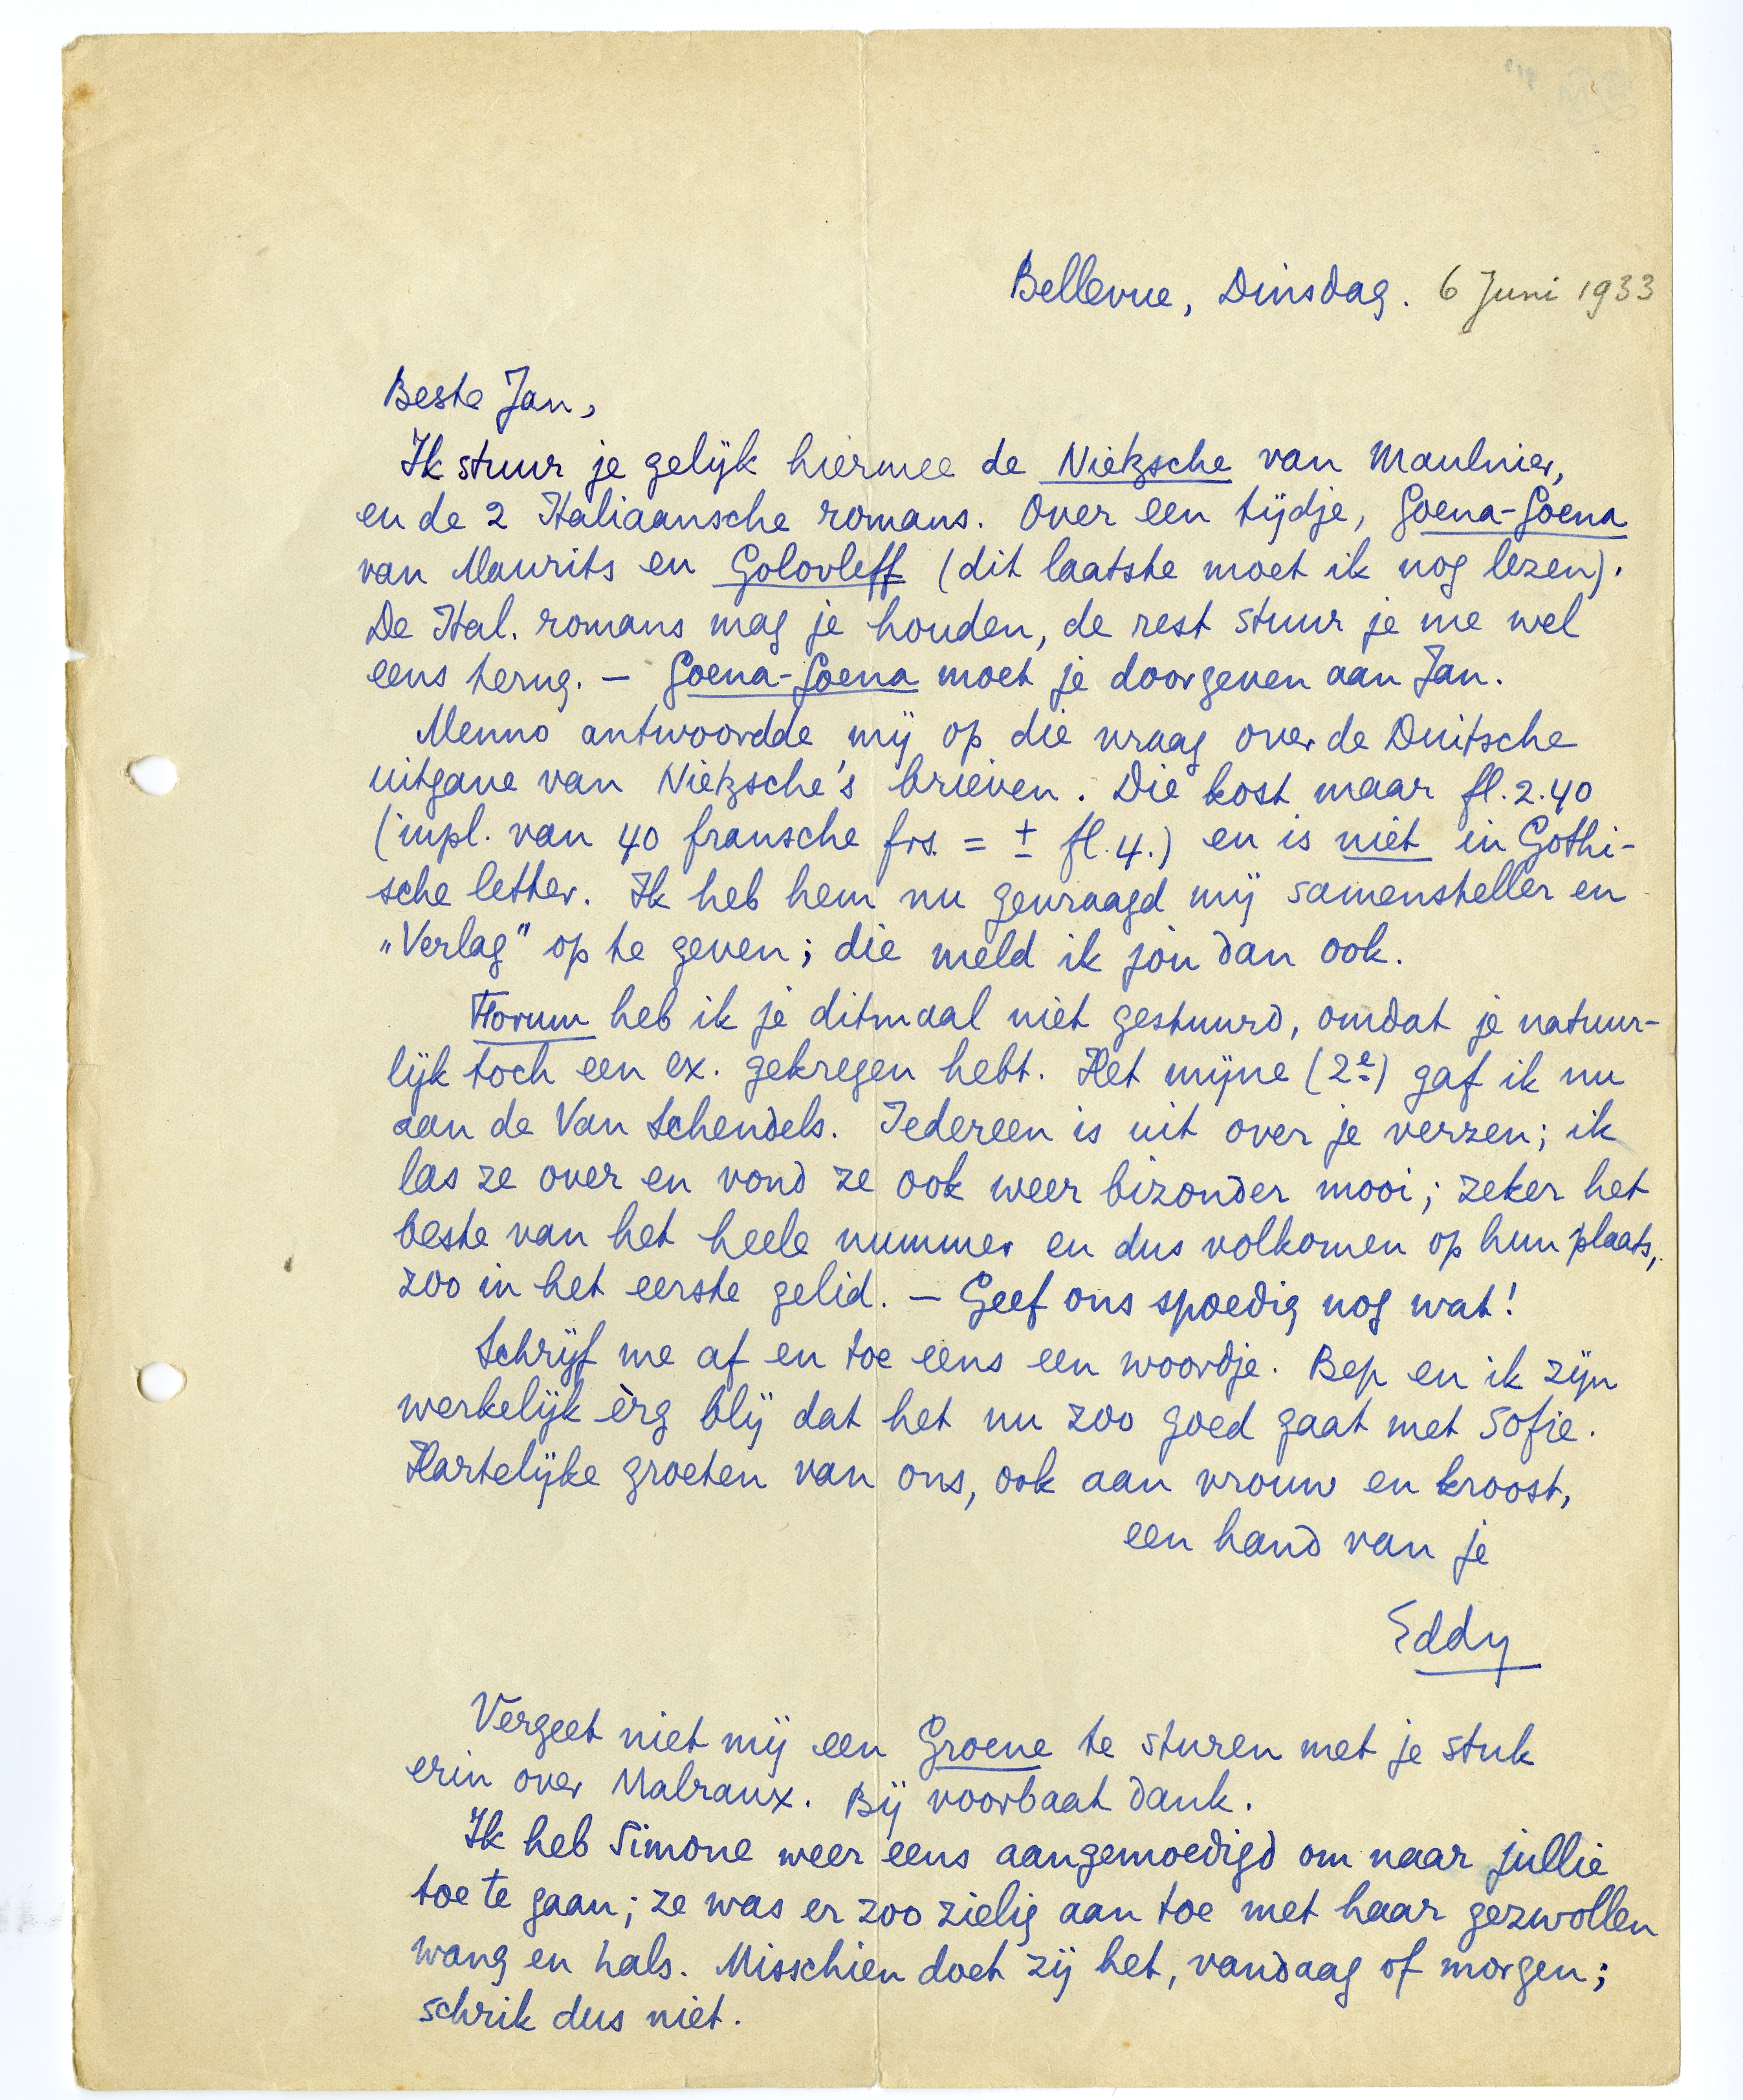 Bellevue, Dinsdag. 6 Juni 1933
Beste Jan,
Ik stuur je gelijk hiermee de Nietzsche van Maulnier,
en de 2 Italiaansche romans. Over een tijdje, Goena-Goena
van Maurits en Golovleff (dit laatste moet ik nog lezen).
De Ital. romans mag je houden, de rest stuur je me wel
eens terug. — Goena-Goena moet je doorgeven aan Jan.
Menno antwoordde mij op die vraag over de Duitsche
uitgave van Nietzsche's brieven. Die kost maar fl. 2.40
(inpl. van 40 fransche frs. = ± fl. 4.) en is niet in Gothi-
sche letter. Ik heb hem nu gevraagd mij samensteller en
„Verlag" op te geven; die meld ik jou dan ook.
Forum heb ik je ditmaal niet gestuurd, omdat je natuur-
lijk toch een ex. gekregen hebt. Het mijne (2e) gaf ik nu
aan de Van Schendels. Iedereen is uit over je verzen; ik
las ze over en vond ze ook weer bizonder mooi; zeker het
beste van het heele nummer en dus volkomen op hun plaats,
zoo in het eerste gelid. — Geef ons spoedig nog wat!
Schrijf me af en toe eens een woordje. Bep en ik zijn
werkelijk èrg blij dat het nu zoo goed gaat met Sofie.
Hartelijke groeten van ons, ook aan vrouw en kroost,
een hand van je
Eddy
Vergeet niet mij een Groene te sturen met je stuk
erin over Malraux. Bij voorbaat dank.
Ik heb Simone weer eens aangemoedigd om naar jullie
toe te gaan; ze was er zoo zielig aan toe met haar gezwollen
wang en hals. Misschien doet zij het, vandaag of morgen;
schrik dus niet.